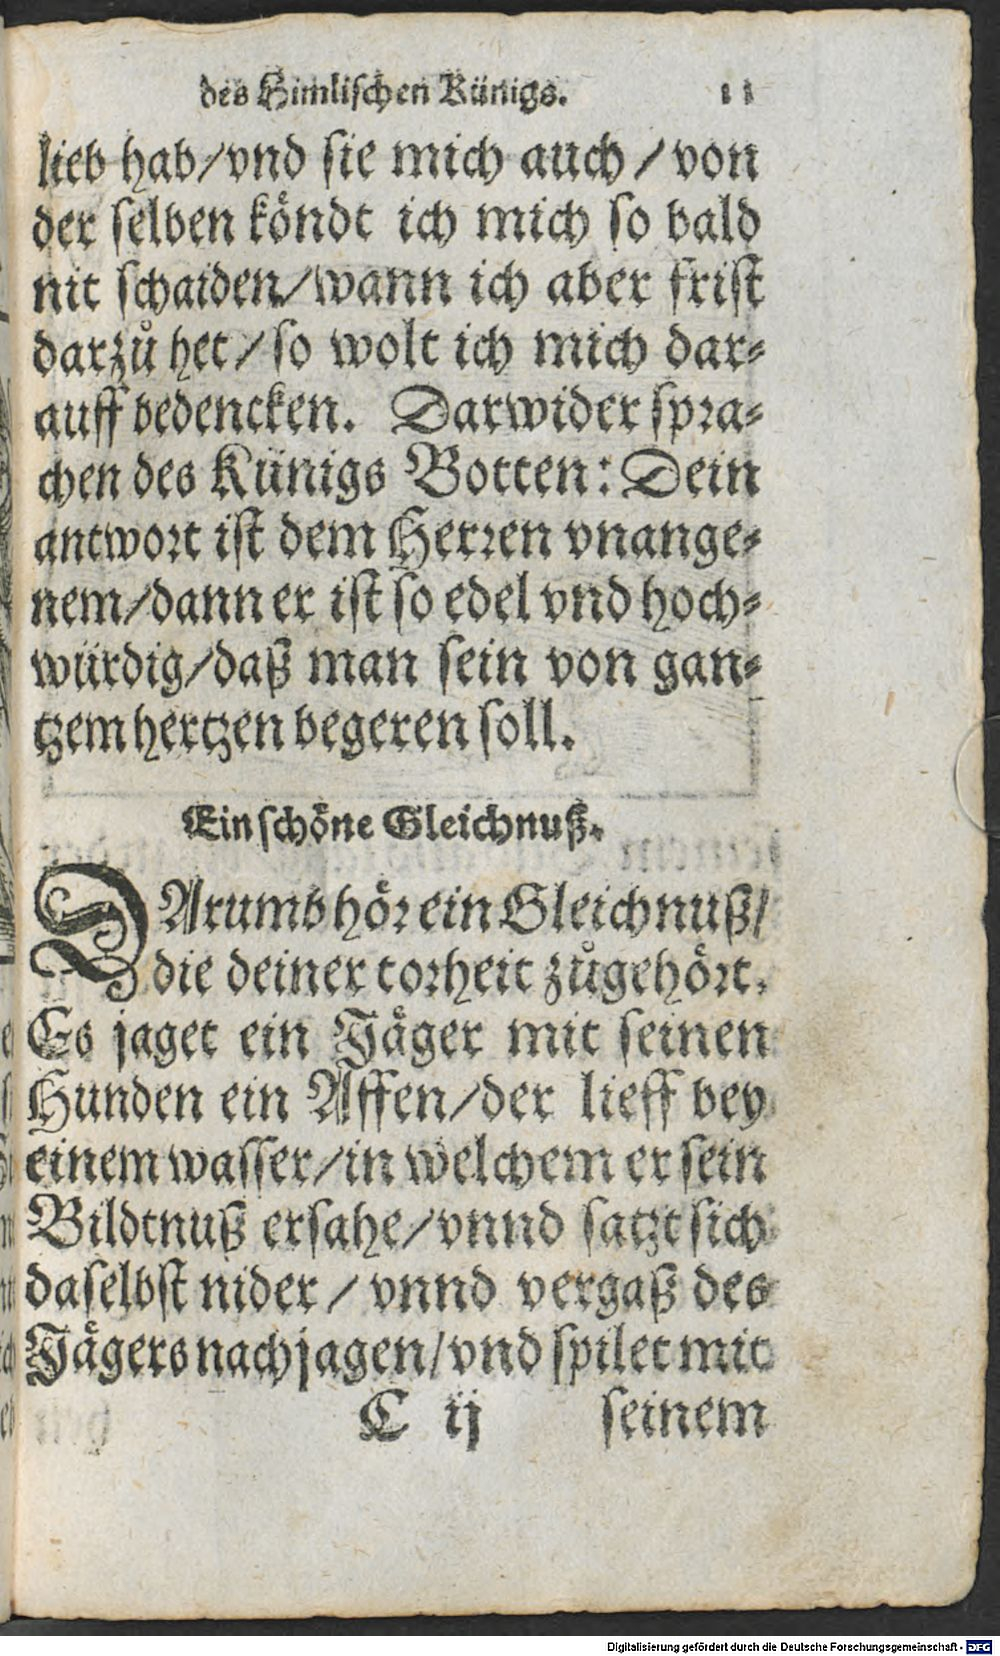 des Himlischen Künigs. 11
lieb hab/vnd sie mich auch/von
der selben köndt ich mich so bald
nit schaiden/wann ich aber frist
darzů het/so wolt ich mich dar⸗
auff bedencken. Darwider spra⸗
chen des Künigs Botten: Dein
antwort ist dem Herren vnange⸗
nem/dann er ist so edel vnd hoch⸗
würdig/daß man sein von gan⸗
tzem hertzen begeren soll.
Ein schöne Gleichnuß.
DArumb hör ein Gleichnuß/
die deiner torheit zůgehört.
Es jaget ein Jäger mit seinen
Hunden ein Affen/der lieff bey
einem wasser/in welchem er sein
Bildtnuß ersahe/vnnd satzt sich
daselbst nider/vnnd vergaß des
Jägers nachjagen/vnd spilet mit
C ij seinem
Digitalisierung gefördert durch die Deutsche Forschungsgemeinschaft - DFG